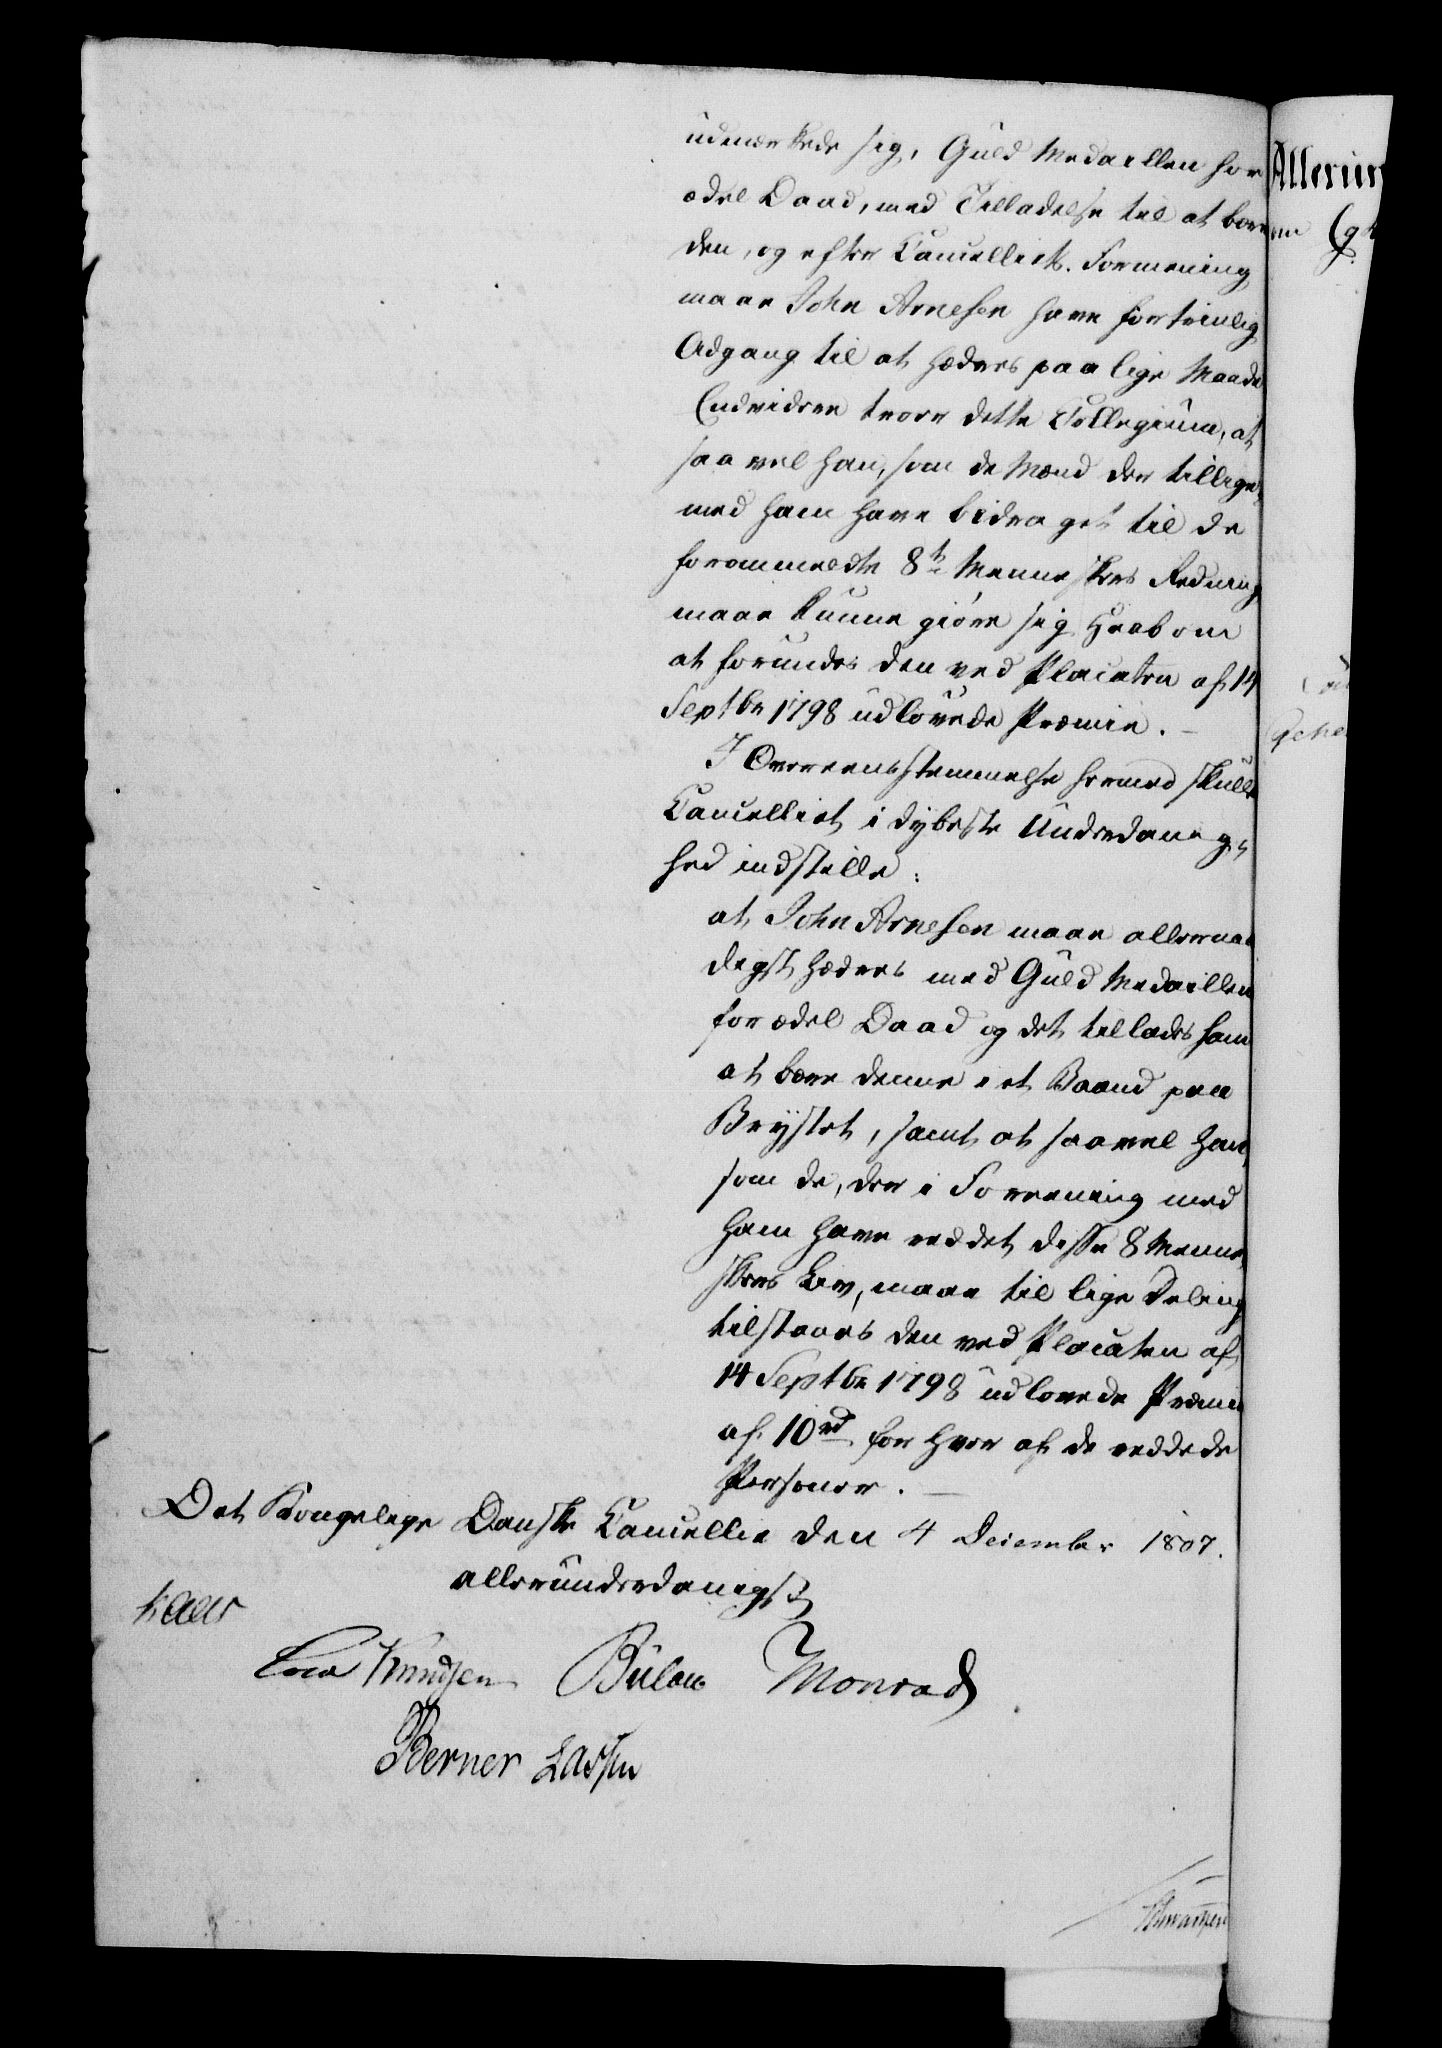 udmærkede sig, Guld Medaillen for
ædel Daad, med Tilladelse til at bære
den, og efter Cancelliets Formening
maae John Arnesen have fortrinlig
Adgang til at hædres paa lige Maade
Endvidere troer dette Collegium, at
saa vel han, som de Mænd der tillige
med ham have bidraget til de
forommeldte 8te Menneskers Redning
maae kunne giøre sig Haab om
at forundes den ved Placaten af 14
Septbr 1798 udlovede Præmie. -
I Overeensstemmelse hermed skulle
Cancelliet i dybeste Underdanig-
hed indstille:
at John Arnesen maae allernaa
digst hædres med Guld Medaillen
for ædel Daad og det tillades ham
at bære denne i et Baand paa
Brystet, samt at saavel han
som de, der i Forening med
ham have reddet disse 8 Menne
skers Liv, maae til lige Deling
tilstaaes den ved Placaten af
14 Septbr 1798 udlovede Præmie
af 10 rd for hver af de reddede
Personer. -
Det Kongelige Danske Cancellie den 4 December 1807.
allerunderdanigst
Kaas
Knudsen Bülow Monrad
Berner Lassen
Allerun